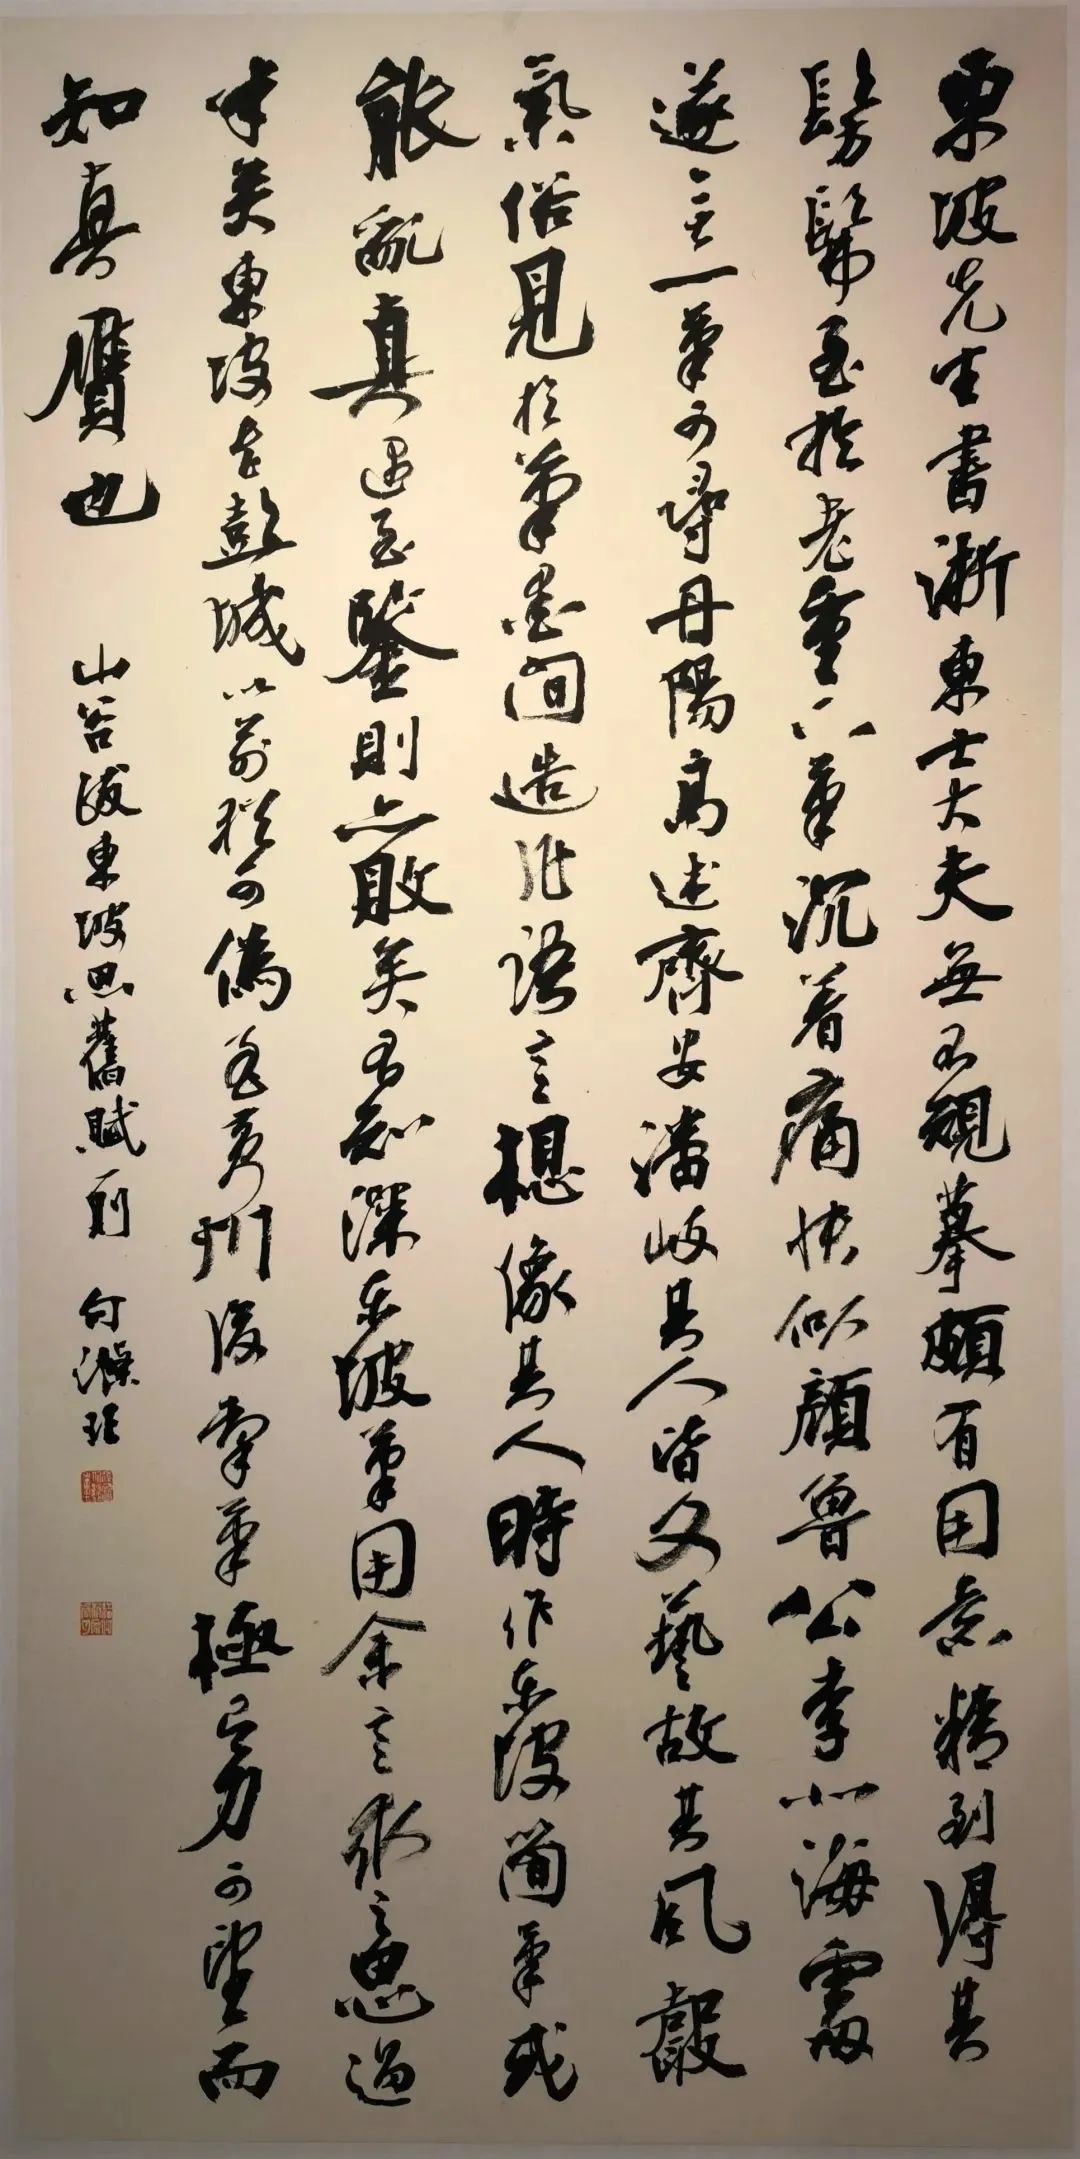 東坡先生書浙東士大夫無不規摹頗有用意精到得其
髣髴至於老重下筆沉着痛快似顏魯公李北海處
遂無一筆可尋丹陽高述齊安潘岐其人皆文藝故其風聲
氣俗見於筆墨間造作語言想像其人時作東坡簡筆或
能亂真遇至鑒則亦敗矣不知深東坡筆用余言求之思過
半矣東坡在彭城以前猶可偽至黃州後掣筆極有力可望而
知真贋也
山谷跋東坡思舊賦則